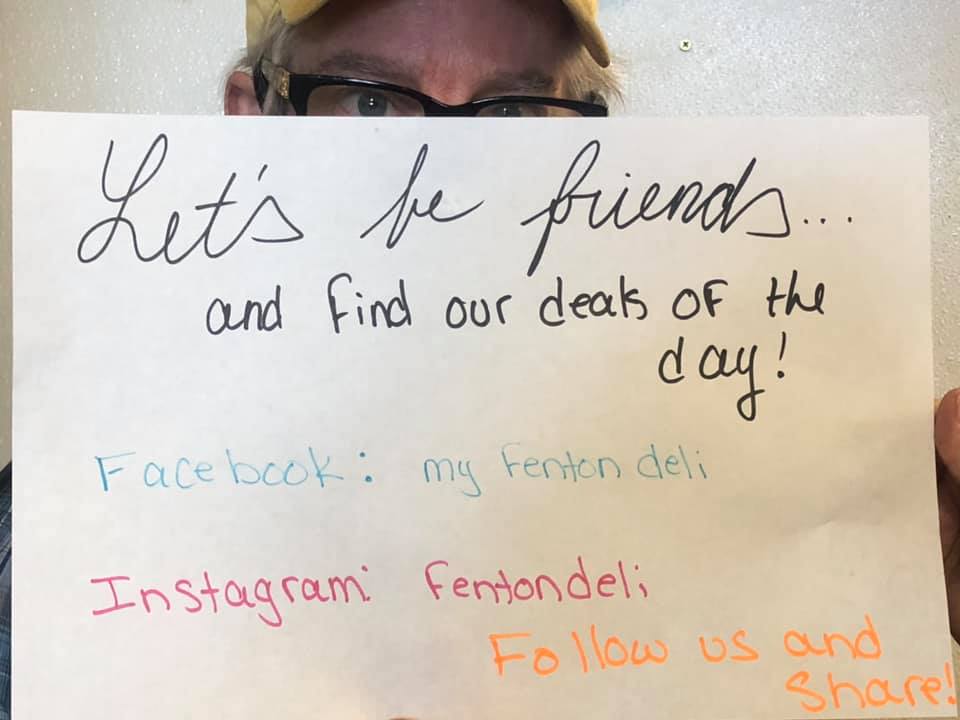 Let's be friends...
and find our deals of the
day!
Facebook: my fenton deli
Instagram: fentondeli
Follow us and
Share!